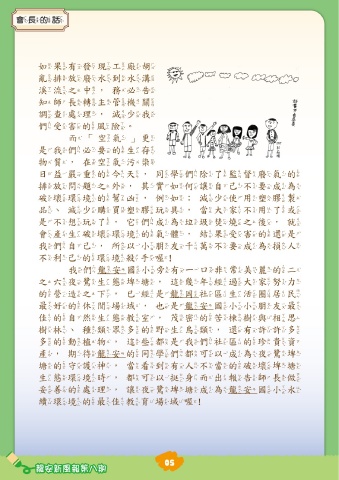 會長的話
如果有發現工廠胡
亂排放廢水到水溝
溪流之中，務必告
知師長轉主管機關
調查處理，減少我
們受害的風險。
而「空氣」更
是我們必要的生存
物質，在空氣污染
日益嚴重的今天，同學們除了監督廢氣的
排放問題之外，其實如何讓自己不要成為
破壞環境的幫凶，例如：減少使用塑膠製
品、減少購買塑膠玩具，當大家不用了或
是不想玩了，它們成為垃圾焚燒之後，就
會產生破壞環境的氣體，結果受害的還是
我們自己，所以小朋友千萬不要成為損人
不利己的環境殺手喔！
我們龍安國小旁有一口非常美麗的二
之六夜鷺生態埤塘，這幾年經過大家努力
的營造之下，已經是龍岡社區生活圈居民
最好的休閒場域，也是龍安國小小朋友最
佳的自然生態教室，茂密的苦楝樹與相思
樹林、種類眾多的野生鳥類，還有許許多
多的動植物，這些都是我們社區的珍貴資
產，期待龍安的同學們都可以成為夜鷺埤
塘的守護神，當看到有人不當的破壞埤塘
生態環境時，都可以挺身而出報告師長做
妥善的處理，讓夜鷺埤塘成為龍安國小永
續環境的最佳教育場域喔！
龍安新風報第八期
05